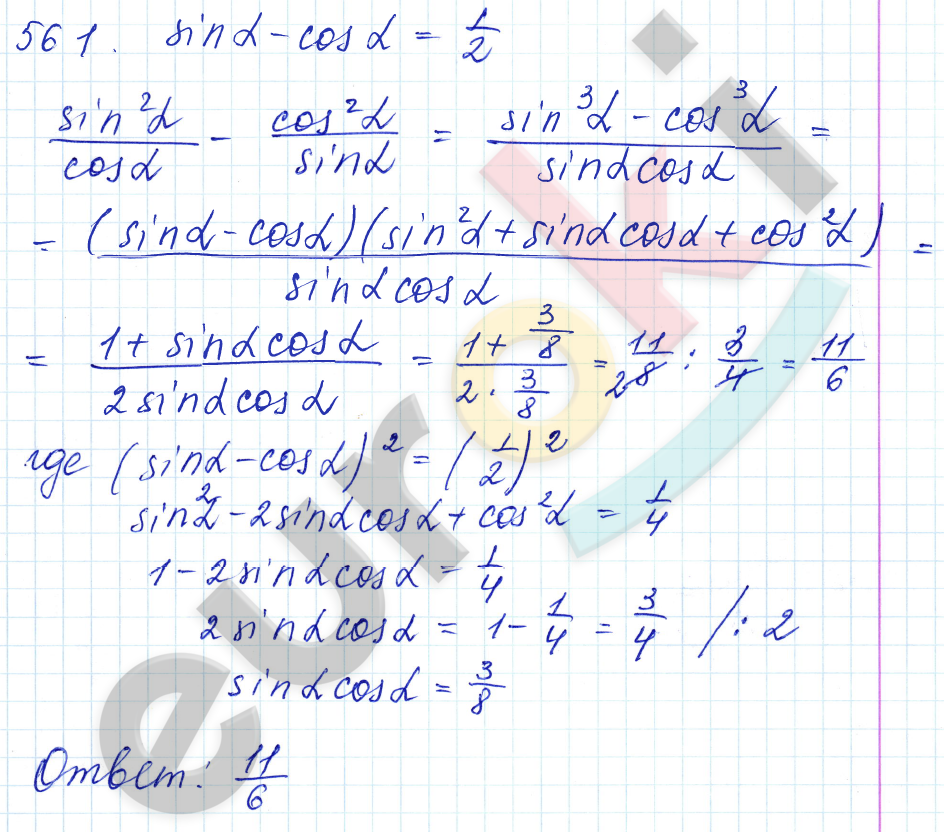 561. sinα - cosα = 1/2
sin²α/cosα - cos²α/sinα = (sin³α - cos³α)/(sinα cosα) =
= (sinα - cosα)(sin²α + sinα cosα + cos²α)/(sinα cosα) =
= (1 + sinα cosα)/(2 sinα cosα) = (1 + 3/8)/(2 · 3/8) = 11/8 : 3/4 = 11/6
2
где (sinα - cosα)² = (1/2)²
sin²α - 2sinα cosα + cos²α = 1/4
1 - 2sinα cosα = 1/4
2sinα cosα = 1 - 1/4 = 3/4 /: 2
sinα cosα = 3/8
Ответ: 11/6
euroki